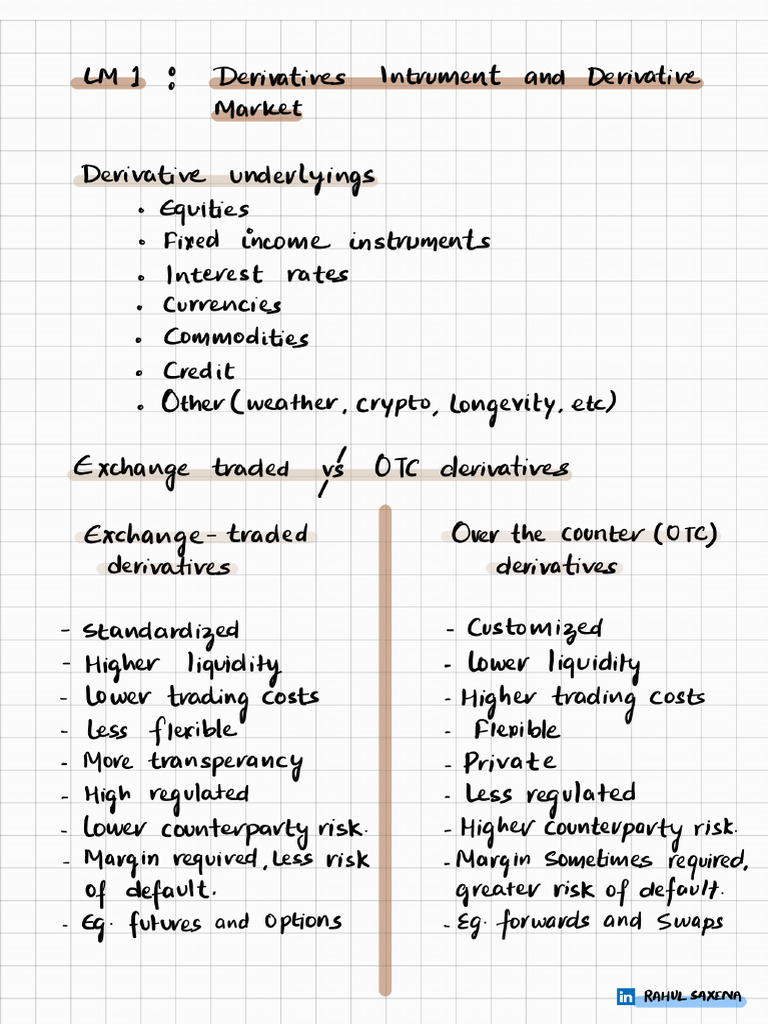 LM 1 : Derivatives Intrument and Derivative
Market
Derivative underlyings
• Equities
• Fixed income instruments
• Interest rates
• Currencies
• Commodities
• Credit
• Other (weather, crypto, Longevity, etc)
Exchange traded vs OTC derivatives
Exchange-traded
derivatives
- Standardized
- Higher liquidity
- Lower trading costs
- Less flexible
- More transperancy
- High regulated
- Lower counterparty risk.
- Margin required, Less risk
of default.
- Eg. futures and Options
Over the counter (OTC)
derivatives
- Customized
- Lower liquidity
- Higher trading costs
- Flexible
- Private
- Less regulated
- Higher counterparty risk.
- Margin Sometimes required,
greater risk of default.
- Eg. forwards and Swaps
in RAHUL SAXENA